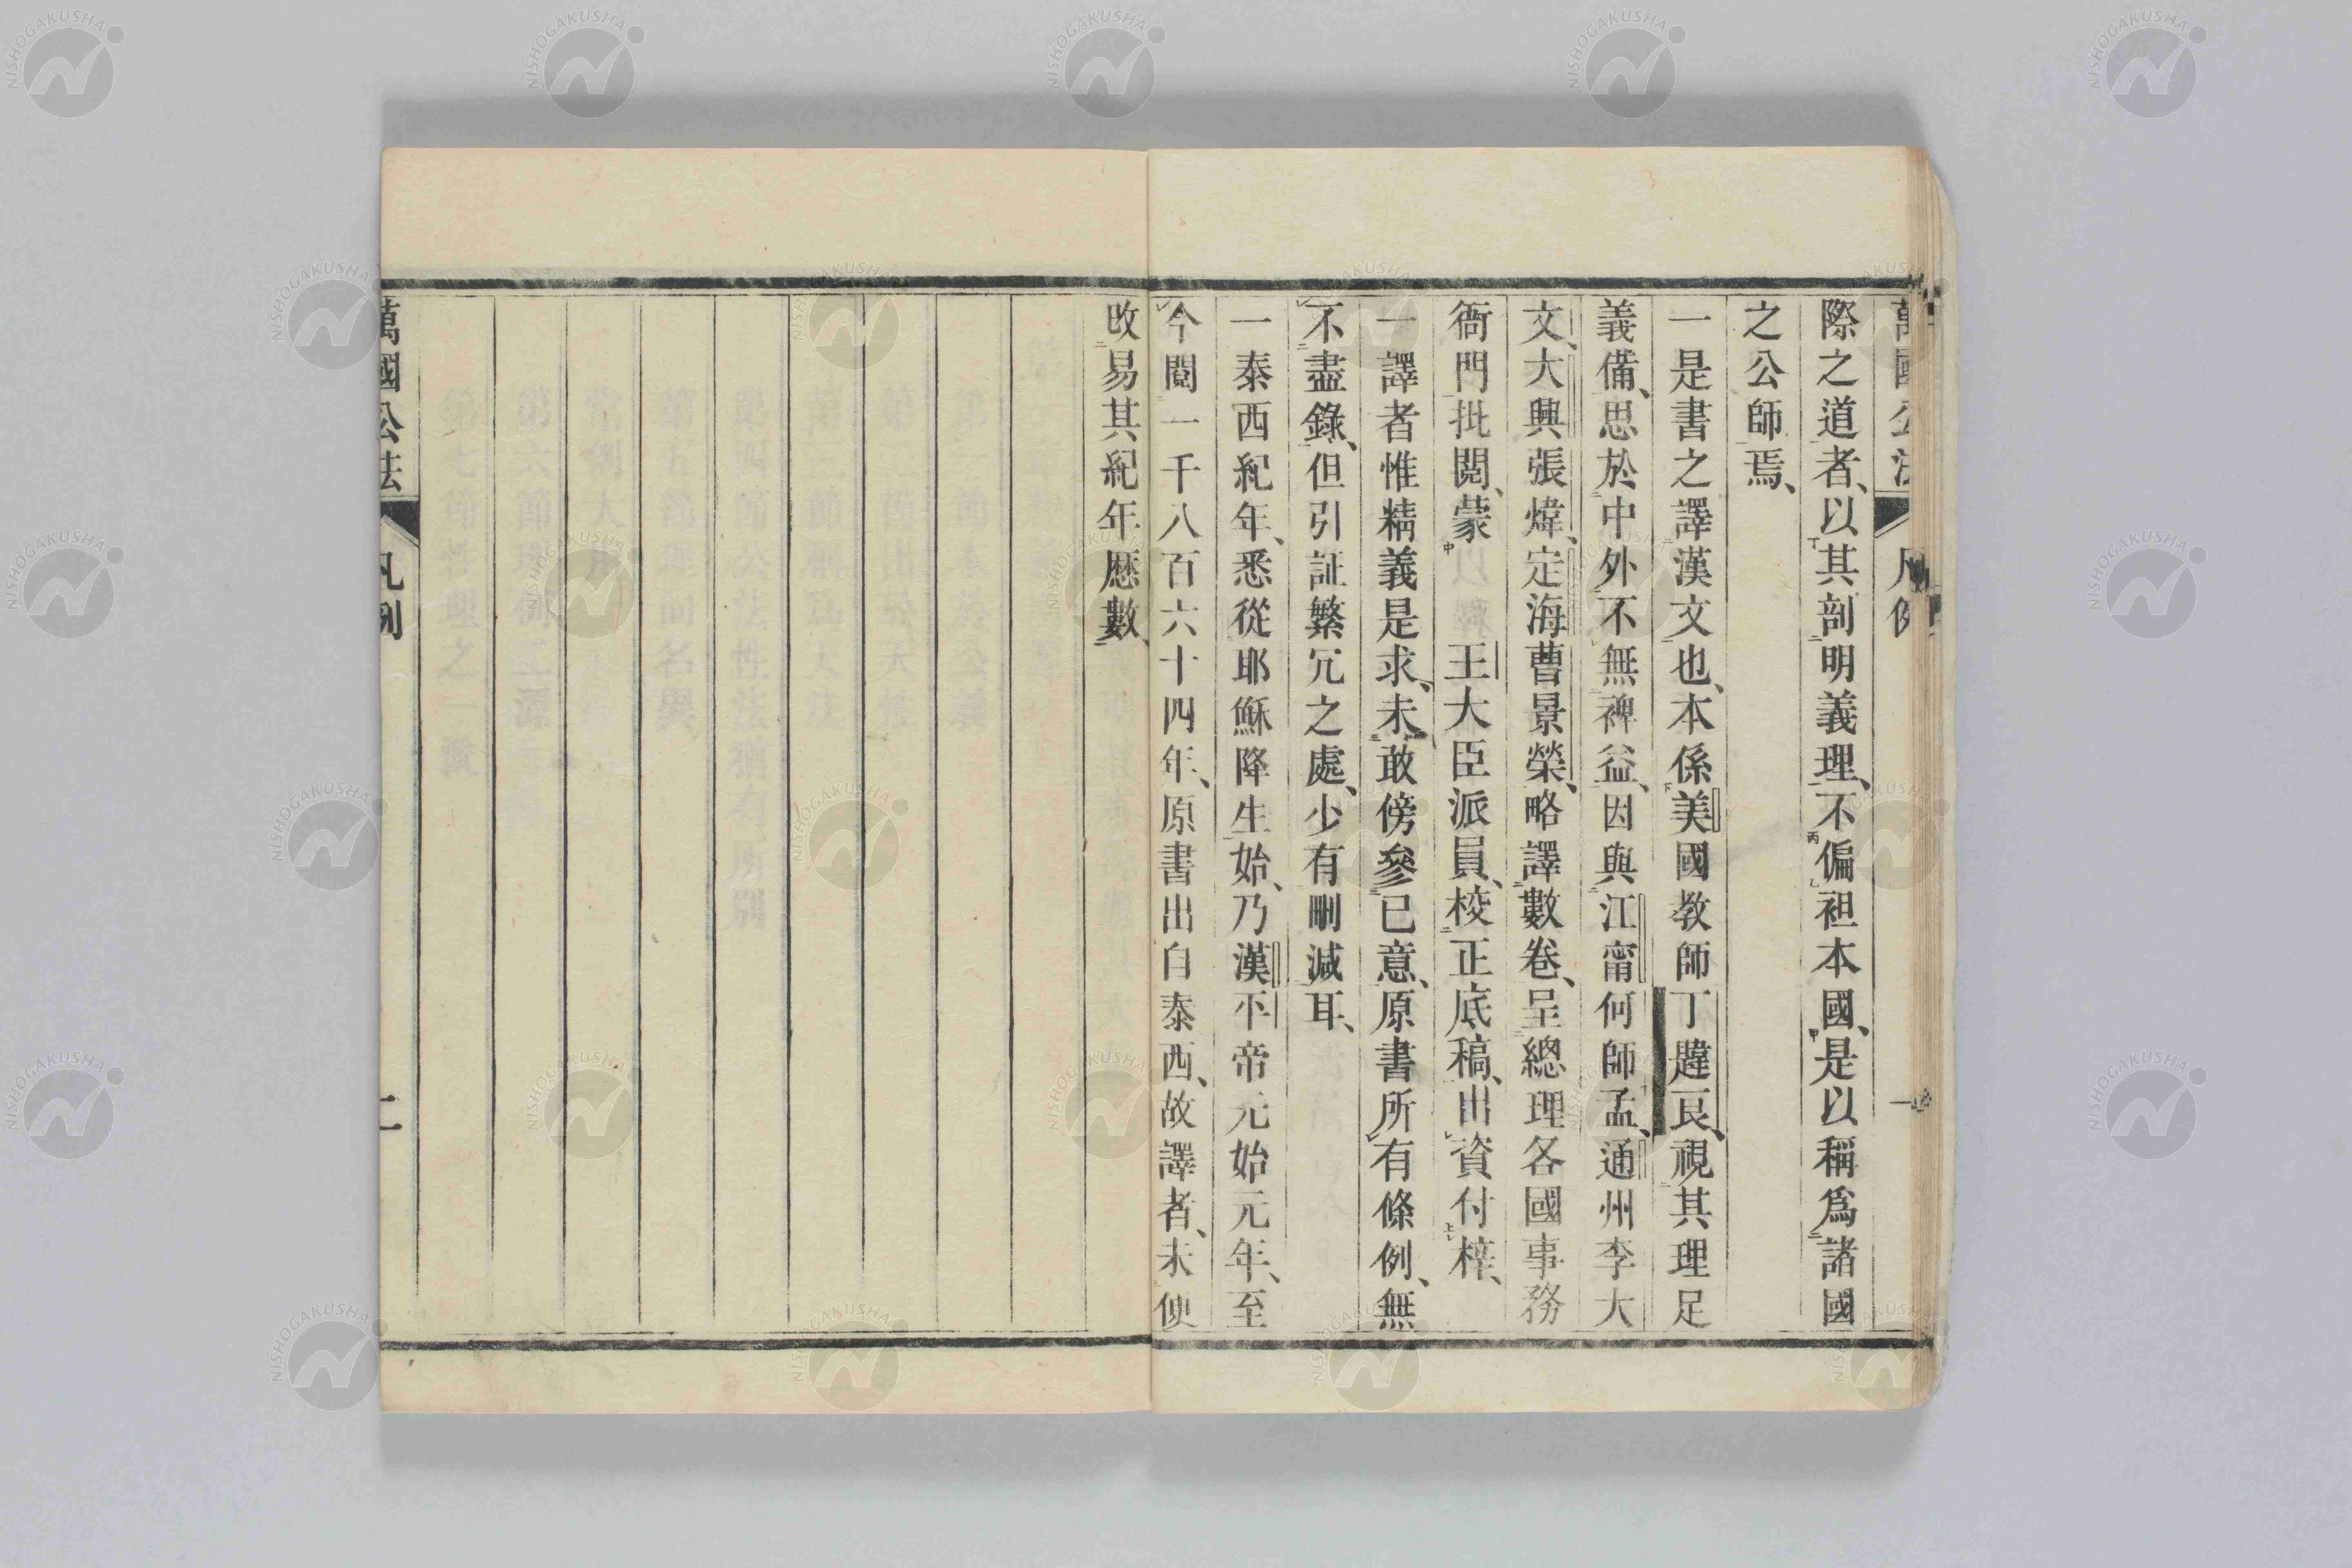 萬國公法 凡例 一
際之道者、以其剖明義理、不偏袒本國、是以稱爲諸國
之公師焉、
一是書之譯漢文也、本係美國教師丁韙良、視其理足
義備、思於中外不無裨益、因與江甯何師孟、通州李大
文、大興張煒、定海曹景榮、略譯數卷、呈總理各國事務
衙門批閲、蒙
王大臣派員、校正底稿、出資付梓、
一譯者惟精義是求、未敢傍參已意、原書所有條例、無
不盡錄、但引証繁冗之處、少有刪減耳、
一泰西紀年、悉從耶穌降生始、乃漢平帝元始元年、至
今閲一千八百六十四年、原書出自泰西、故譯者、未便
改易其紀年歷數、
萬國公法 凡例 二
NISHOGAKUSHA